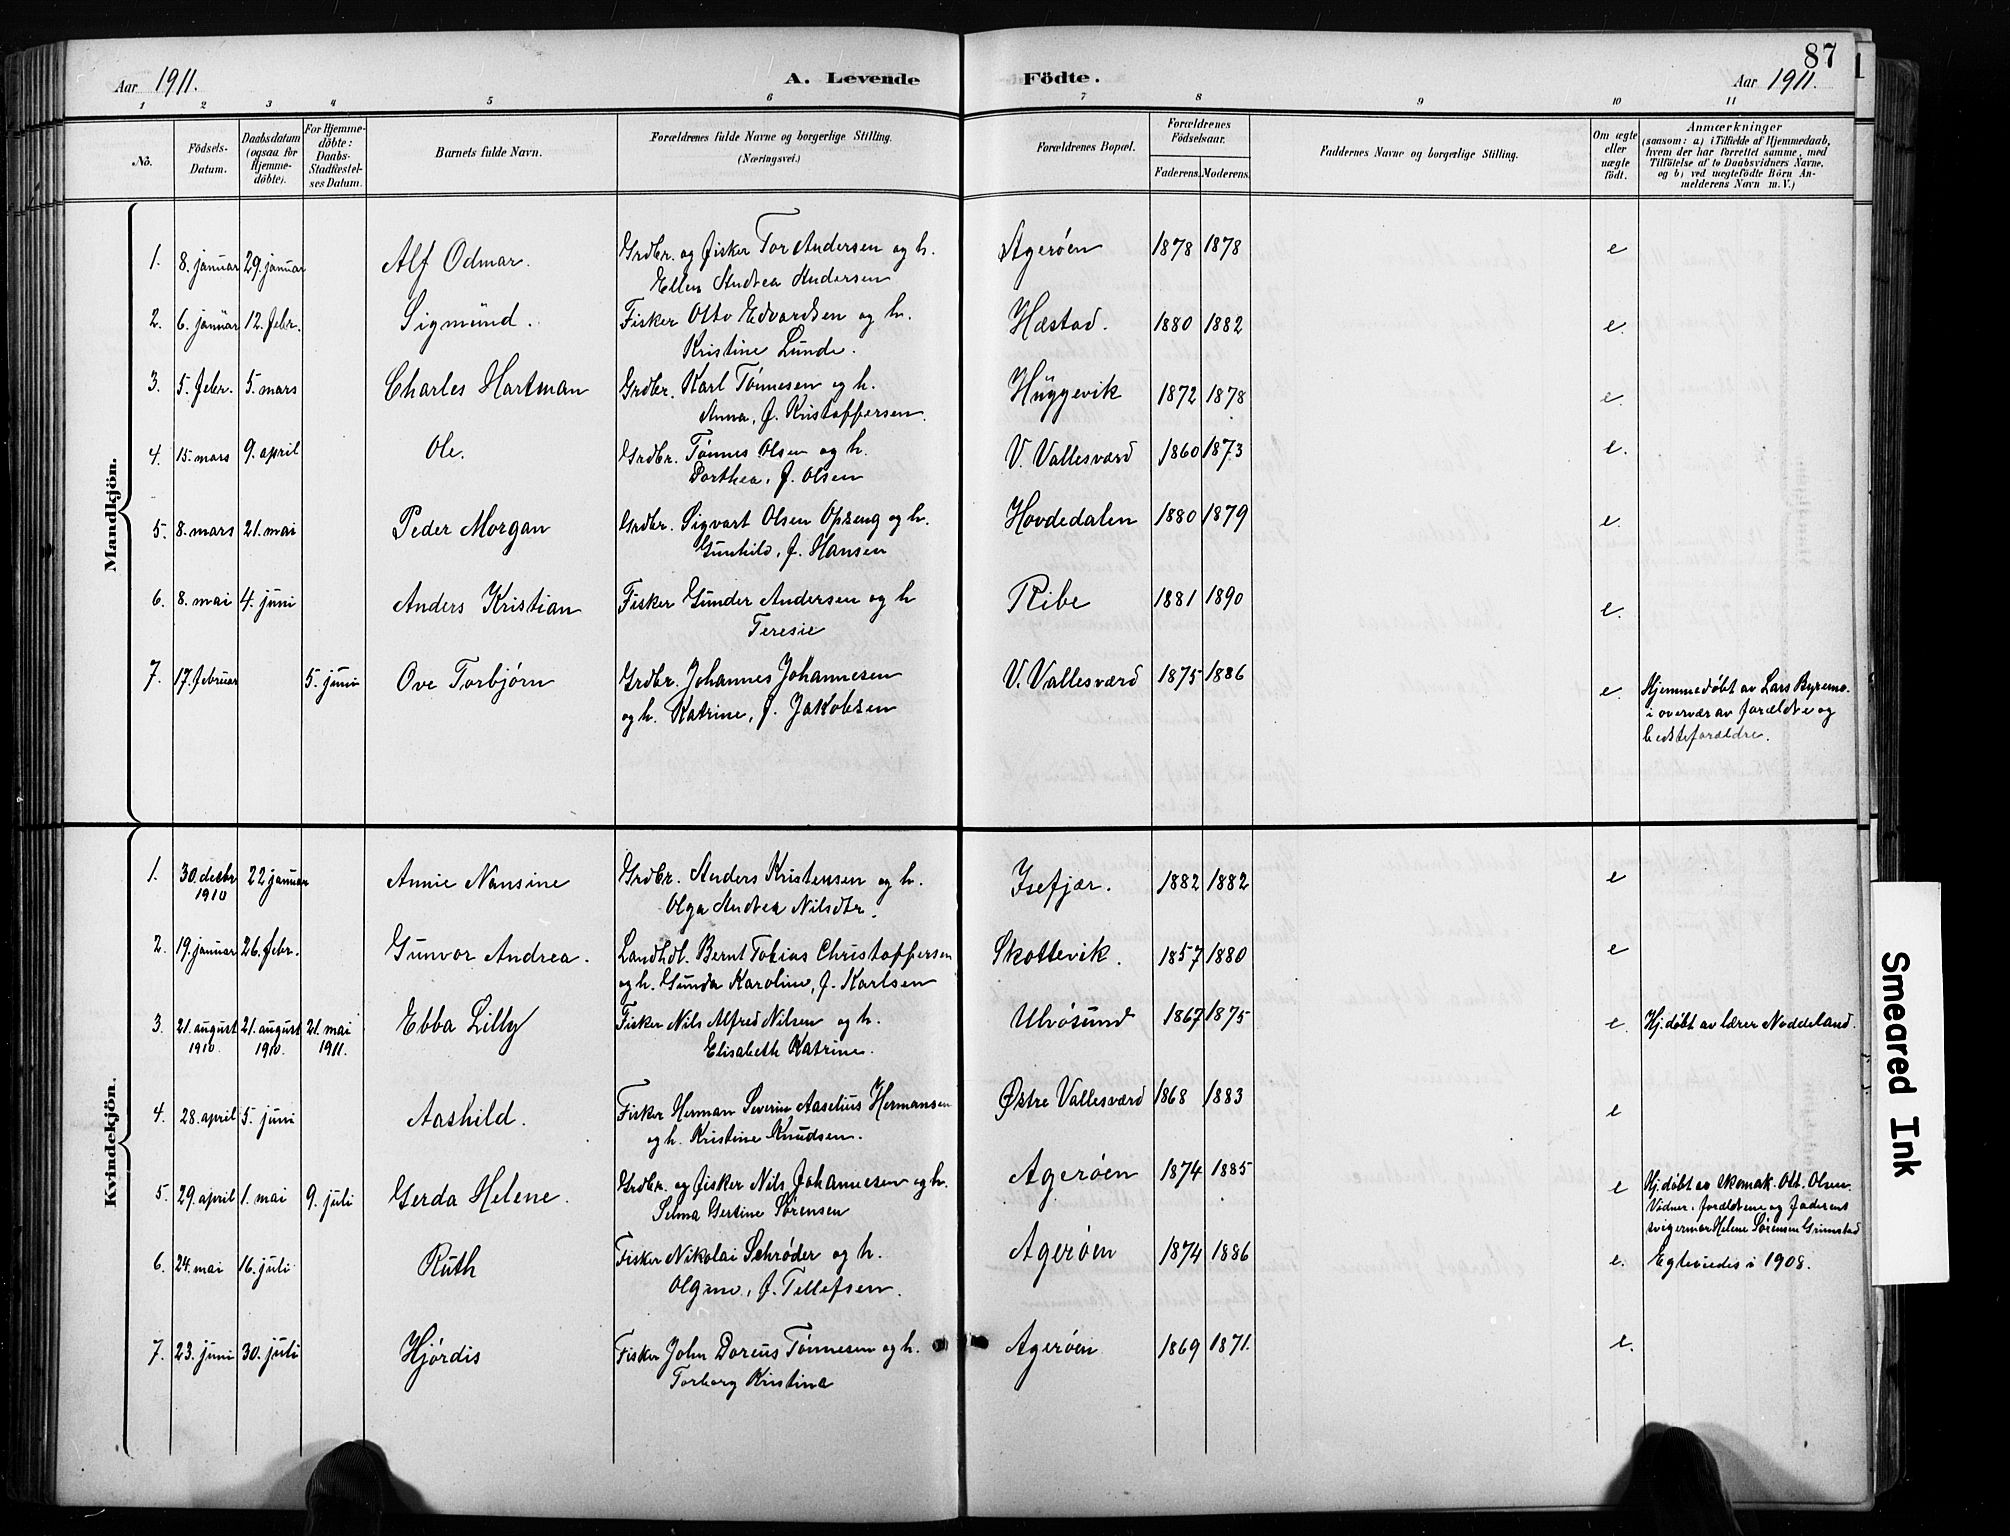 87
Aar 1911. A. Levende Födte. Aar 1911.
1 2 3 4 5 6 7 8 9 10 11
No.
Födsels-Datum.
Daabsdatum (ogsaa for Hjemme-döbte).
For Hjemme-döbte: Daabs-Stadfæstel-ses Datum.
Barnets fulde Navn.
Forældrenes fulde Navne og borgerlige Stilling.
(Næringsvei.)
Forældrenes Bopæl.
Forældrenes Födselsaar.
Faderens. Moderens.
Faddernes Navne og borgerlige Stilling.
Om ægte eller uægte födt.
Anmærkninger
(saasom: a) i Tilfælde af Hjemmedaab,
hvem der har forrettet samme, med
Tilföielse af to Daabsvidners Navne,
og b) ved uægtefödte Börn An-
melderens Navn m. V.)
Mandkjön.
1. 8. januar 29. januar Alf Odmar. Grdbr. og fisker Tor Andersen og h. Agerøen 1878 1878 e
Ellen Andrea Andersen
2. 6. januar 12. febr. Sigmund. Fisker Otto Edvardsen og h. Hæstad. 1880 1882 e.
Kristine Lunde.
3. 5. febr. 5. mars Charles Hartman Grdbr. Karl Tønnesen og h. Huggevik 1872 1878 e.
Anna, f. Kristoffersen.
4. 15. mars 9. april Ole. Grdbr. Tønnes Olsen og h. V. Vallesværd 1860 1873 e.
Dorthea, f. Olsen
5. 8. mars 21. mai Peder Morgan Grdbr. Sigvart Olsen Opseng og h. Hovdedalen 1880 1879 e.
Gunhild, f. Hansen
6. 8. mai 4. juni Anders Kristian Fisker Gunder Andersen og h Ribe 1881 1890 e.
Teresie
7. 17. februar 5. juni Ove Torbjørn Grdbr. Johannes Johannesen V. Vallesværd 1875 1886 e. Hjemmedøbt av Lars Byremo.
og h. Katrine, f. Jakobsen i overvær av forældre og
bedsteforældre.
Kvindekjön.
1. 30. decbr 1910 22 januar Annie Nansine Grdbr. Anders Kristensen og h. Isefjær. 1882 1882 e
Olga Andrea Nilsdtr.
2. 19. januar 26. febr. Gunvor Andrea. Landhdl. Bernt Tobias Christoffersen Skottevik. 1857 1880 e
og h. Gunda Karoline, f. Karlsen
3. 21. august 1910. 21. august 1910. 21. mai 1911. Ebba Lilly Fisker Nils Alfred Nilsen og h. Ulvøsund 1867 1875 e. Hj. døbt av lærer Noddeland.
Elisabeth Katrine.
4. 28. april 5. juni Aashild. Fisker Herman Severin Aaselius Hermansen Østre Vallesværd 1868 1883 e
og h. Kristine Knudsen.
5. 29. april 1. mai 9. juli Gerda Helene. Grdbr. og fisker Nils Johannesen og h. Agerøen 1874 1885 e Hj. døbt av skomak. Ott. Olsen.
Selma Gertine Sørensen Vidner: forældrene og faderens
svigermor Helene Sørensen Grimstad
6. 24. mai 16. juli Ruth Fisker Nikolai Schrøder og h. Agerøen 1874 1886 e. Egteviedes i 1908.
Olgine, f. Tellefsen.
7. 23. juni 30. juli Hjørdis Fisker John Doreus Tønnesen og h. Agerøen 1869 1871. e.
Torborg Kristina
Smeared Ink